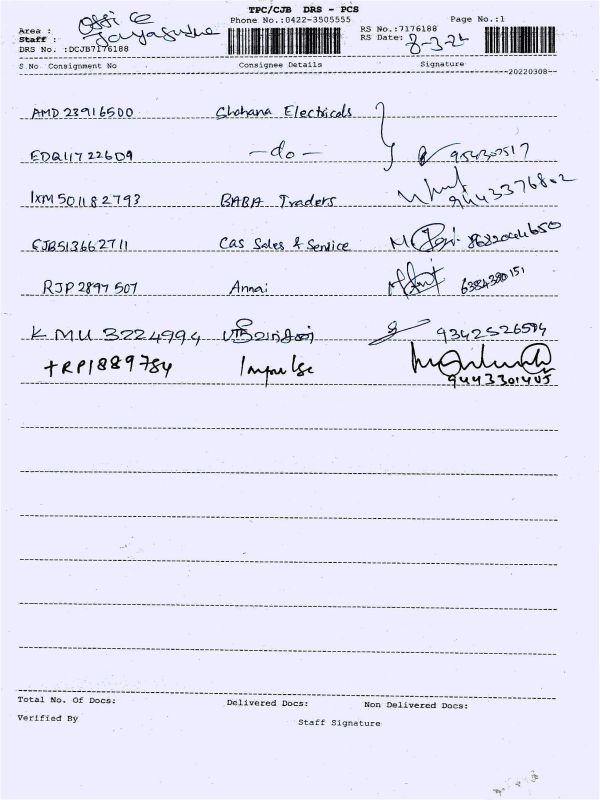 TPC/CJB DRS - PCS
Area : Office Phone No.:0422-3505555 Page No.:1
Staff : Jayasudha RS No.:7176188
DRS No. :DCJB7176188 RS Date: 8-3-22
S No Consignment No Consignee Details Signature
20220308
AMD 23916500 Shahana Electricals
EDQ117 22609 -do-
IXM 501182793 BABA Traders 9443376802
CJB513662711 Cas Sales & Service
RJP 2897 507 Annai 6384380151
KMU 3224994 9342526594
TRP1889784 Impulse
Total No. Of Docs: Delivered Docs: Non Delivered Docs:
Verified By Staff Signature